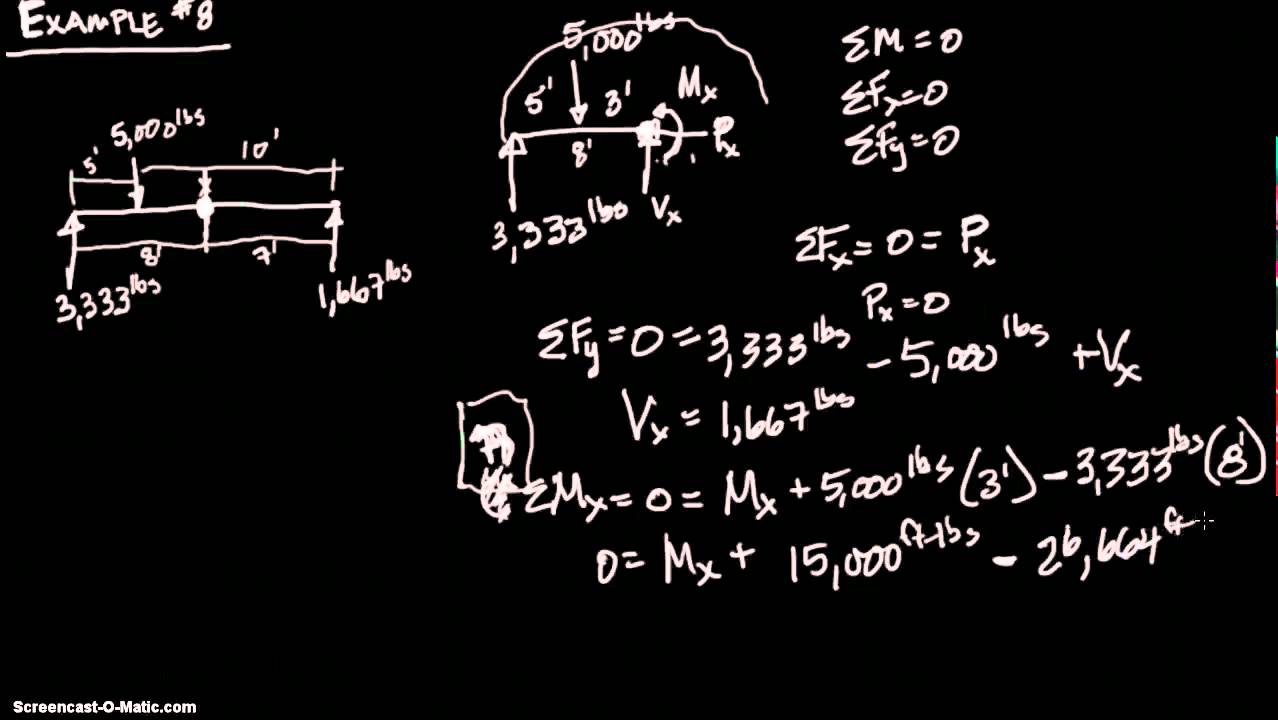 EXAMPLE #8
5,000 lbs
5'
10'
8'
7'
3,333 lbs
1,667 lbs
5,000 lbs
5'
3'
Mx
8'
Px
3,333 lbs
Vx
ΣM = 0
ΣFx = 0
ΣFy = 0
ΣFx = 0 = Px
Px = 0
ΣFy = 0 = 3,333 lbs - 5,000 lbs + Vx
Vx = 1,667 lbs
ΣMx = 0 = Mx + 5,000 lbs (3') - 3,333 lbs (8')
0 = Mx + 15,000 ft-lbs - 26,664 ft-
Screencast-O-Matic.com